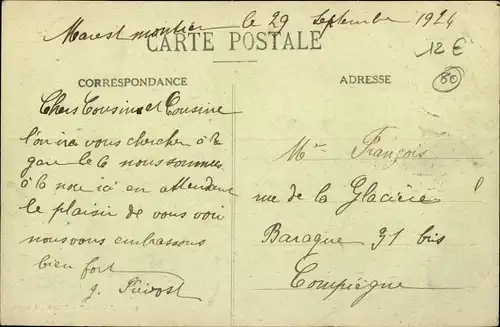 Marest montier le 29 Septembre 1924
CARTE POSTALE
12 €
60
CORRESPONDANCE
ADRESSE
Chers Cousins et Cousine
l'on ira vous chercher à la
gare le 6 nous sommes
à la noce ici en attendent
le plaisir de vous voir
nous vous embrassons
bien fort
J. Prévost
Mr François
rue de la Glacière
Baraque 31 bis
Compiègne